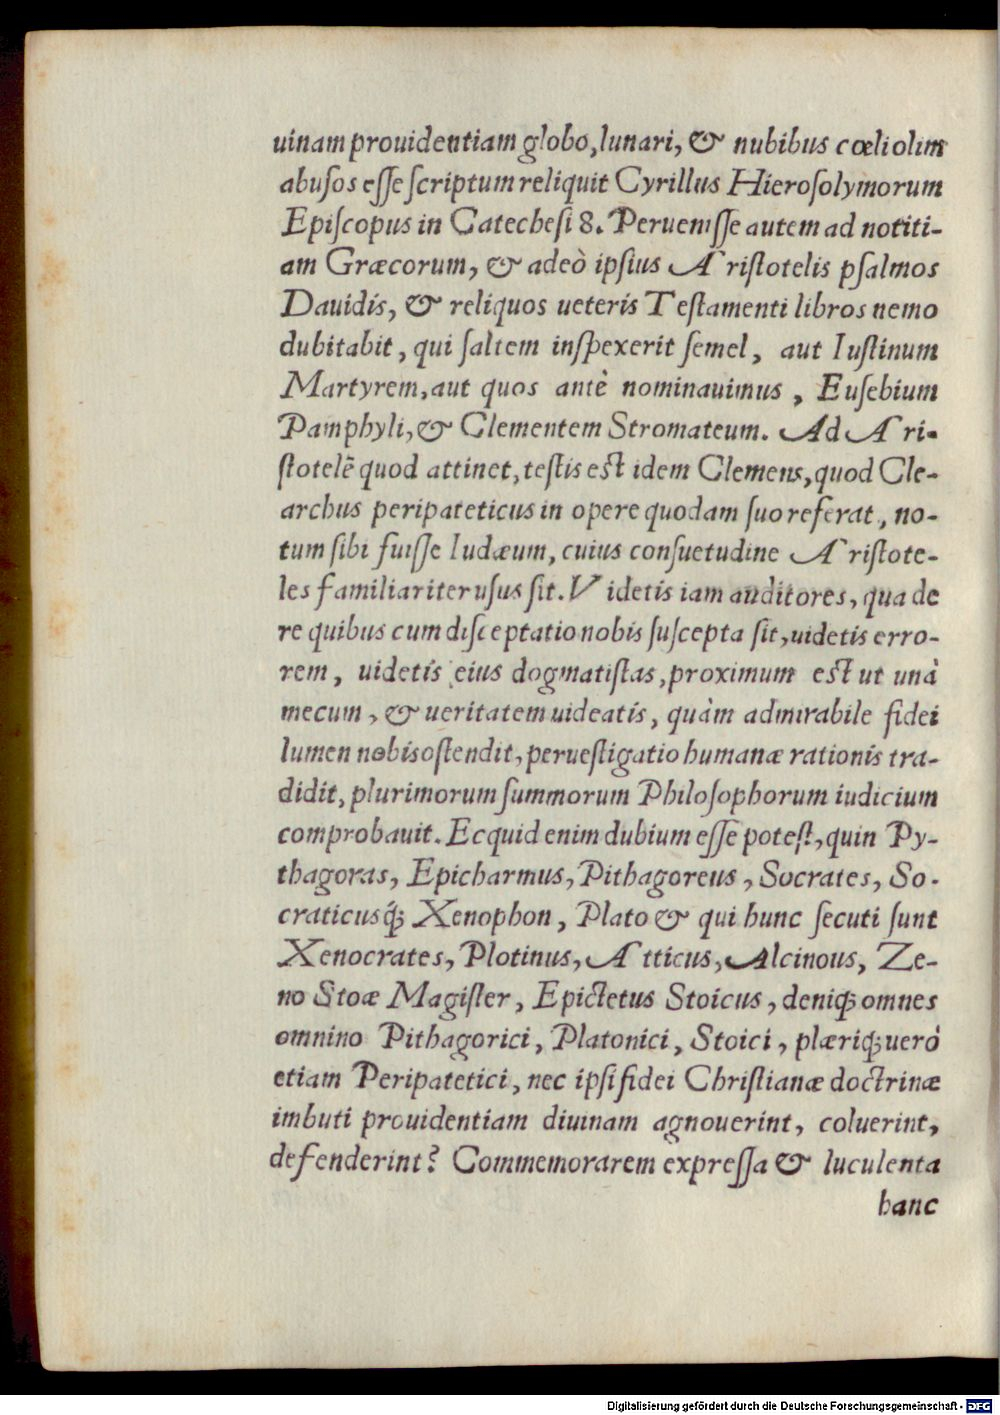 uinam prouidentiam globo, lunari, & nubibus cœli olim
abusos esse scriptum reliquit Cyrillus Hierosolymorum
Episcopus in Catechesi 8. Peruenisse autem ad notiti-
am Græcorum, & adeò ipsius Aristotelis psalmos
Dauidis, & reliquos ueteris Testamenti libros nemo
dubitabit, qui saltem inspexerit semel, aut Iustinum
Martyrem, aut quos antè nominauimus, Eusebium
Pamphyli, & Clementem Stromateum. Ad Ari-
stotelē quod attinet, testis est idem Clemens, quod Cle-
archus peripateticus in opere quodam suo referat, no-
tum sibi fuisse Iudæum, cuius consuetudine Aristote-
les familiariter usus sit. Videtis iam auditores, qua de
re quibus cum disceptatio nobis suscepta sit, uidetis erro-
rem, uidetis eius dogmatistas, proximum est ut unà
mecum, & ueritatem uideatis, quàm admirabile fidei
lumen nobis ostendit, peruestigatio humanæ rationis tra-
didit, plurimorum summorum Philosophorum iudicium
comprobauit. Ecquid enim dubium esse potest, quin Py-
thagoras, Epicharmus, Pithagoreus, Socrates, So-
craticusq́; Xenophon, Plato & qui hunc secuti sunt
Xenocrates, Plotinus, Atticus, Alcinous, Ze-
no Stoæ Magister, Epictetus Stoicus, deniq; omnes
omnino Pithagorici, Platonici, Stoici, plæriq; uerò
etiam Peripatetici, nec ipsi fidei Christianæ doctrinæ
imbuti prouidentiam diuinam agnouerint, coluerint,
defenderint? Commemorarem expressa & luculenta
hanc
Digitalisierung gefördert durch die Deutsche Forschungsgemeinschaft - DFG